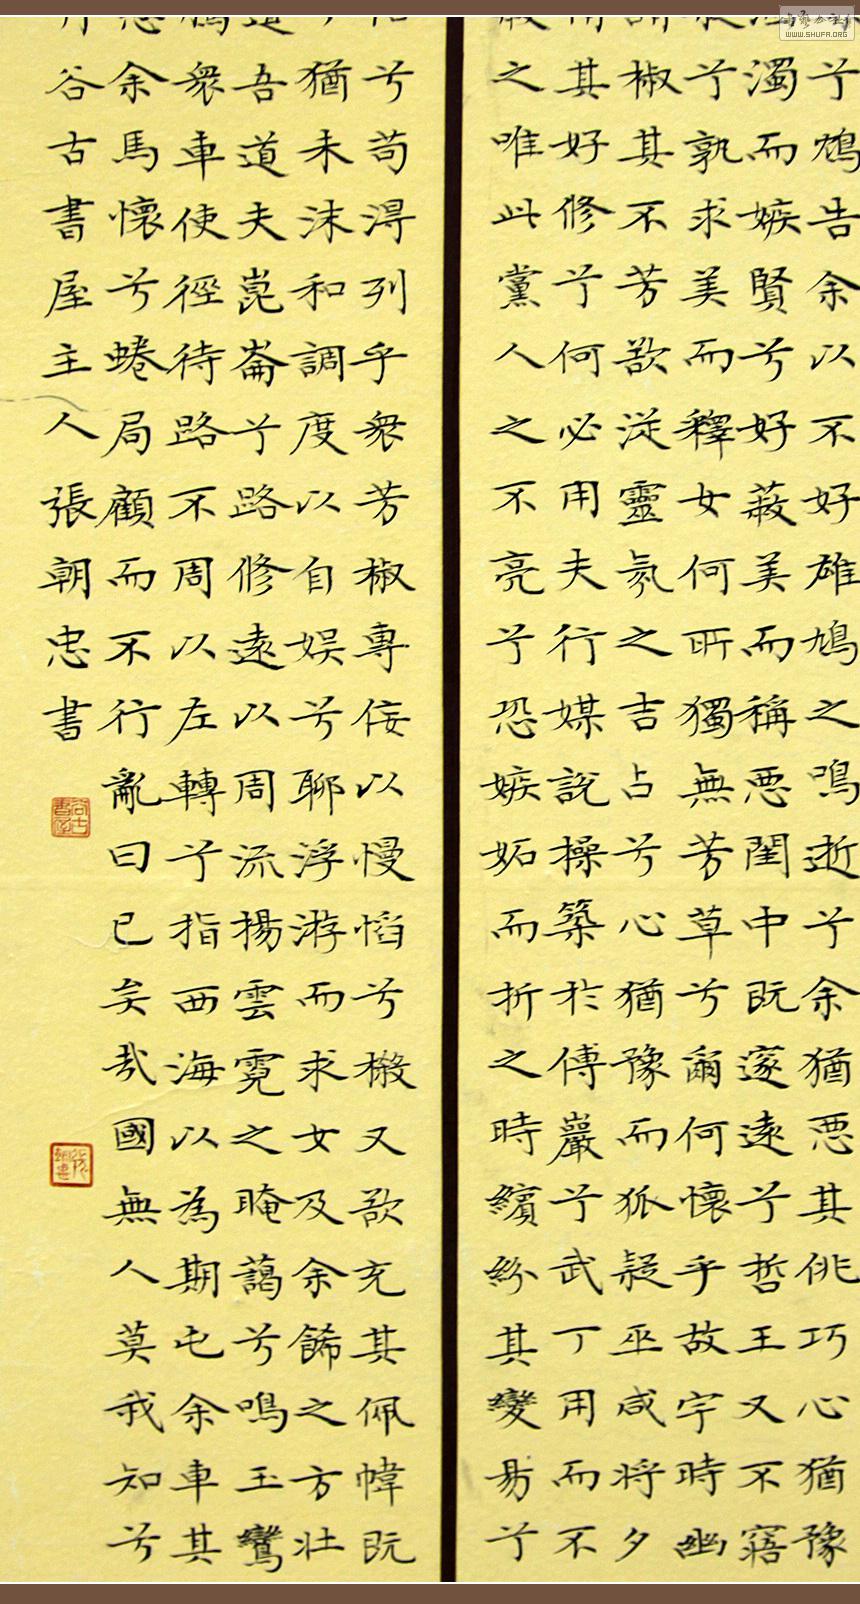 兮鴆告余以不好雄鳩之鳴逝兮余猶惡其佻巧心猶豫
濁而嫉賢兮好蔽美而稱惡閨中既邃遠兮哲王又不寤
兮孰求美而釋女何所獨無芳草兮爾何懷乎故宇時幽
椒其不芳欲從靈氛之吉占兮心猶豫而狐疑巫咸將夕
其好修兮何必用夫行媒說操築於傅巖兮武丁用而不
之唯此黨人之不亮兮恐嫉妬而折之時繽紛其變易兮
兮苟得列乎眾芳椒專佞以慢慆兮樧又欲充其佩幃既
猶未沬和調度以自娛兮聊浮游而求女及余飾之方壯
吾道夫崑崙兮路修遠以周流揚雲霓之晻藹兮鳴玉鸞
眾車使徑待路不周以左轉兮指西海以為期屯余車其
余馬懷兮蜷局顧而不行亂曰已矣哉國無人莫我知兮
谷古書屋主人張朝忠書
WWW.SHUFA.ORG